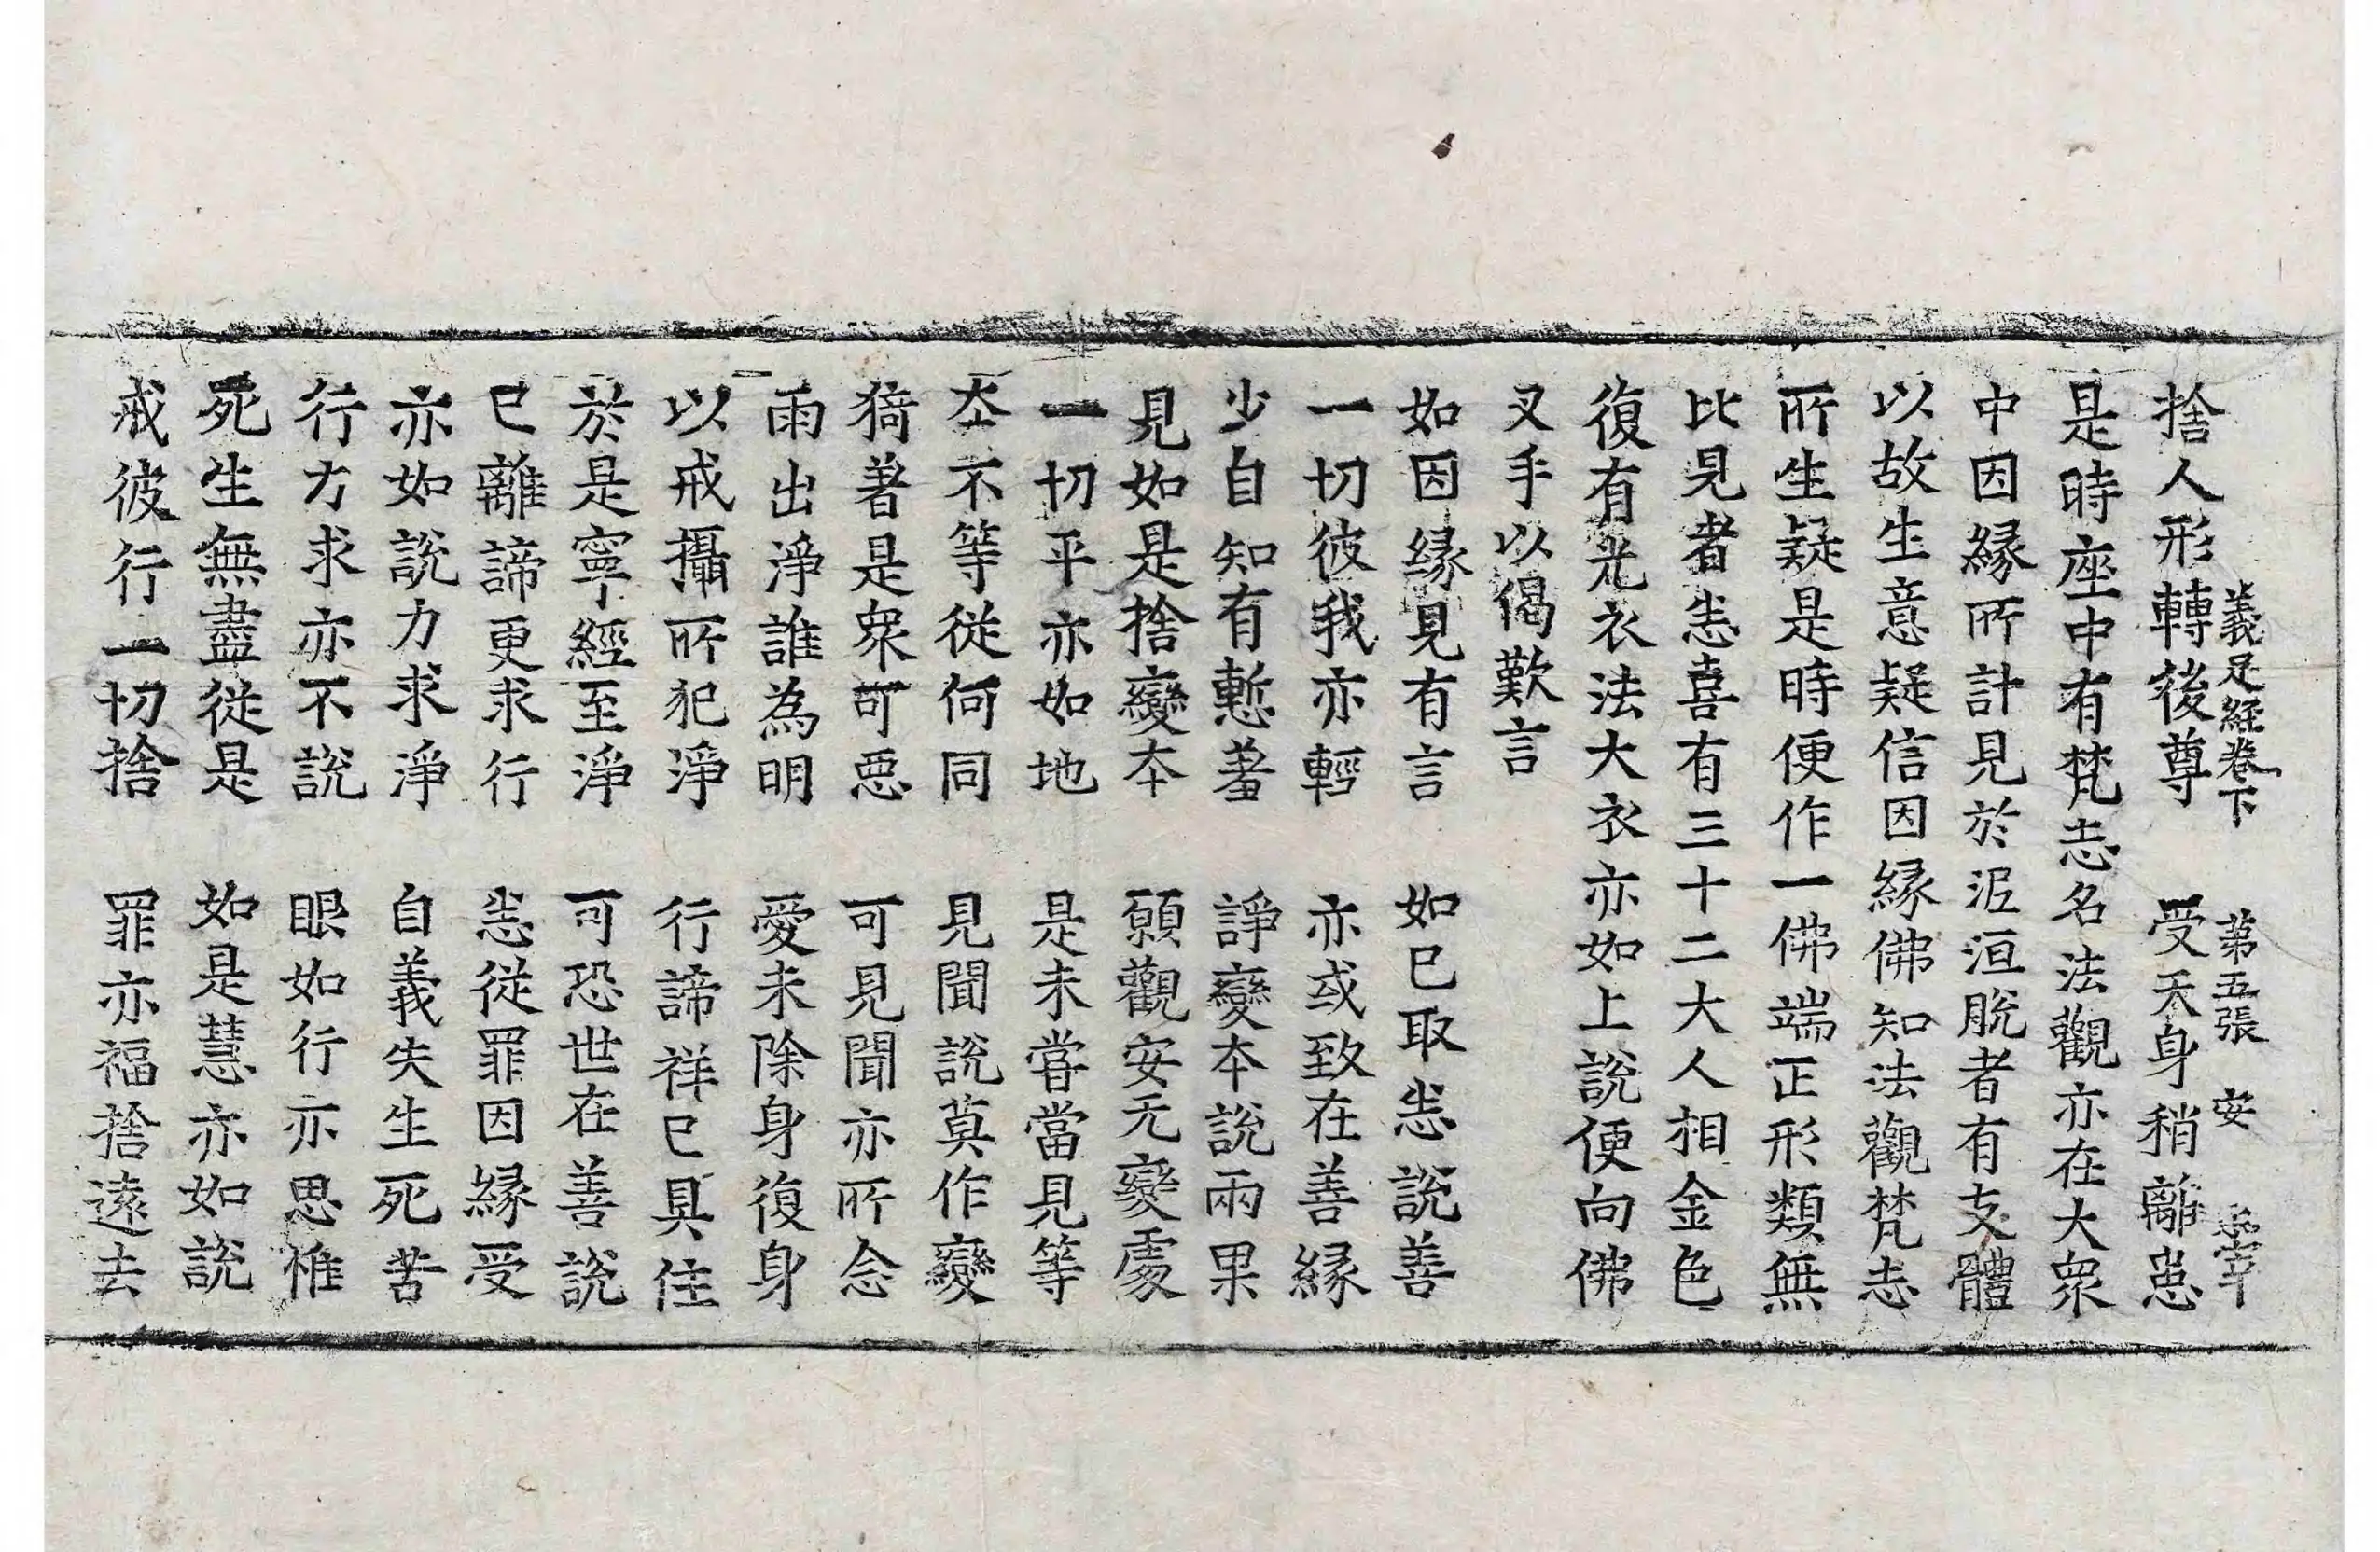 義足經卷下　第五張　安
捨人形轉後尊　受天身稍離患
是時座中有梵志名法觀亦在大衆
中因緣所計見於泥洹脫者有支體
以故生意疑信因緣佛知法觀梵志
所生疑是時便作一佛端正形類無
比見者恚喜有三十二大人相金色
復有光衣法大衣亦如上說便向佛
叉手以偈歎言
如因緣見有言　如已取恚說善
一切彼我亦輕　亦或致在善緣
少自知有慙羞　諍變本說兩果
見如是捨變本　願觀安无變處
一切平亦如地　是未甞當見等
本不等從何同　見聞說莫作變
猗著是衆可惡　可見聞亦所念
雨出淨誰為明　愛未除身復身
以戒攝所犯淨　行諦祥已具住
於是寧經至淨　可恐世在善說
已離諦更求行　恚從罪因緣受
亦如說力求淨　自義失生死苦
行力求亦不說　眼如行亦思惟
死生無盡從是　如是慧亦如說
戒彼行一切捨　罪亦福捨遠去